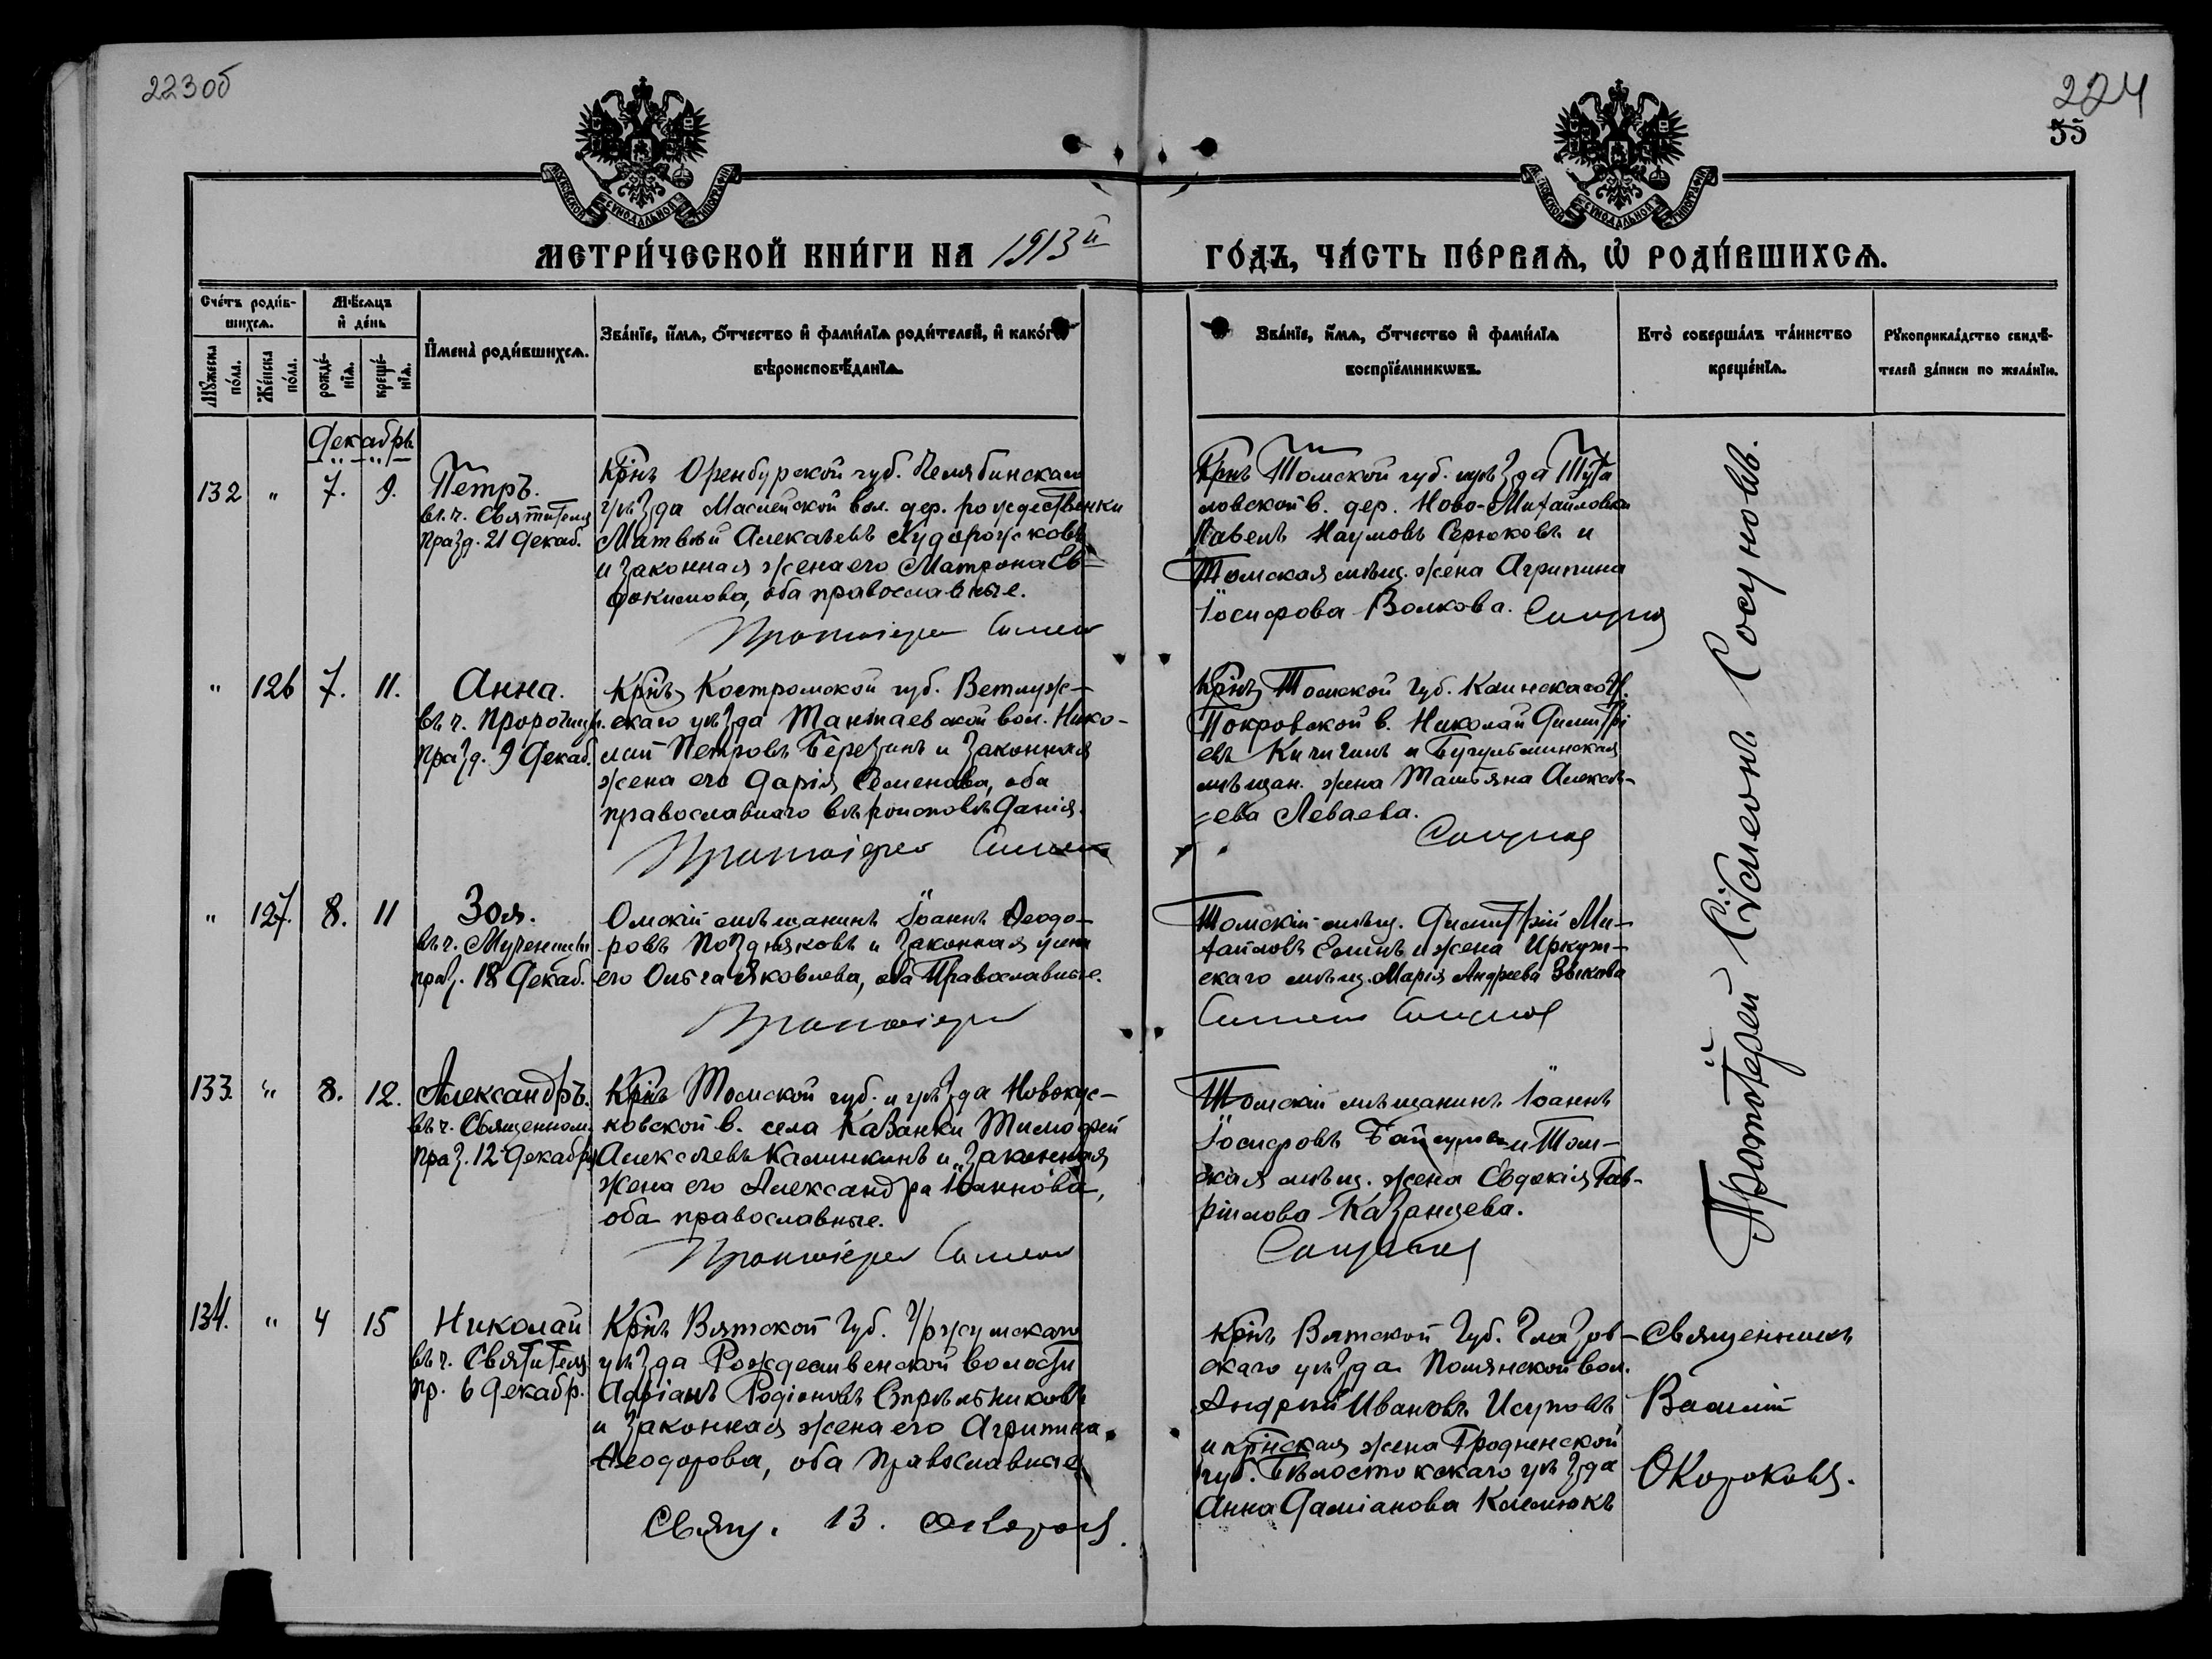 223об
224
55
МОСКОВСКОЙ СѴНОДАЛЬНОЙ ТИПОГРАФІИ
МЕТРИ́ЧЕСКОЙ КНИ́ГИ НА 1913й
ГО́ДЪ, ЧА́СТЬ ПЕ́РВАѦ, Ѿ РОДИ́ВШИХСѦ.
Сче́тъ роди́в-
шихсѧ.
Мꙋ́жеска по́ла.
Же́нска по́ла.
Мѣ́сѧцъ
и҆ де́нь
рожде́-
нїѧ.
креще́-
нїѧ.
И҆мена̀ роди́вшихсѧ.
Зва́нїе, и҆́мѧ, ѻ҆́тчество и҆ фами́лїѧ роди́телей, и҆ како́гѡ
вѣроисповѣ́данїѧ.
Зва́нїе, и҆́мѧ, ѻ҆́тчество и҆ фами́лїѧ
воспрїе́мникѡвъ.
Кто̀ соверша́лъ та́инство
креще́нїѧ.
Рꙋкоприкла́дство свидѣ́-
телей за́писи по жела́нїю.
Декабрь
132 " 7. 9.
Петръ.
въ ч. Святителя
празд. 21 Декаб.
Крнъ Оренбурской губ. Челябинскаго
уѣзда Маслейской вол. дер. рождественки
Матвѣй Алекѣевъ Худорожковъ
и законная жена его Матрона Ев-
докимова, оба православные.
Протоіерей Симеон
Крнъ Томской губ. и уѣзда Туга
ловской в. дер. Ново-Михайловки
Павелъ Наумовъ Серюковъ и
Томская мѣщ. жена Агрипина
Іосифова Волкова. Сосунов
" 126 7. 11.
Анна.
въ ч. Пророчицы.
празд. 9 Декаб.
Крнъ Костромской губ. Ветлуж-
скаго уѣзда Тантаевской вол. Нико-
лай Петровъ Березинъ и законная
жена его Дарія Семенова, оба
православнаго вѣроисповѣданія.
Протоіерей Симеон
Крнъ Томской губ. Каинскаго у.
Покровской в. Николай Димитрі
евъ Кичигинъ и Бугульминская
мѣщан. жена Татьяна Алексѣ-
ева Леваева.
Сосунов
" 127. 8. 11
Зоя.
въ ч. Мученицы
праз. 18 Декаб.
Омскій мѣщанинъ Іоаннъ Ѳеодо-
ровъ Поздняковъ и законная жена
его Ольга Яковлева, оба Православные.
Протоіерей
Томскій мѣщ. Димитрій Ми-
хайловъ Еминъ и жена Иркут-
скаго мѣщ. Марія Андреева Зыкова
Симеон Сосунов
133. " 8. 12.
Александръ.
въ ч. Священном.
праз. 12 Декабря
Крнъ Томской губ. и уѣзда Новокус-
ковской в. села Казанки Тимофей
Алексѣевъ Калинкинъ и законная
жена его Александра Іоаннова,
оба православные.
Протоіерей Симеон
Томскій мѣщанинъ Іоаннъ
Іосифовъ и Том-
ская мѣщ. жена Евдокія Гав-
ріилова Казанцева.
Сосунов
Протоіерей Сѵмеонъ Сосуновъ.
134. " 4 15
Николай
въ ч. Святителя
пр. 6 Декабр.
Крнъ Вятской Губ. Уржумскаго
уѣзда Рождественской волости
Адріанъ Родіоновъ Стрѣльниковъ
и законная жена его Агрипина
Ѳеодорова, оба православные
Свящ. В. Окороков.
Крнъ Вятской Губ. Глазов-
скаго уѣзда Полянской вол.
Андрей Ивановъ Исуповъ
и крнская жена Гродненской
губ. Бѣлостокскаго уѣзда
Анна Даміанова Климюкъ
Священникъ
Василій
Окороковъ.